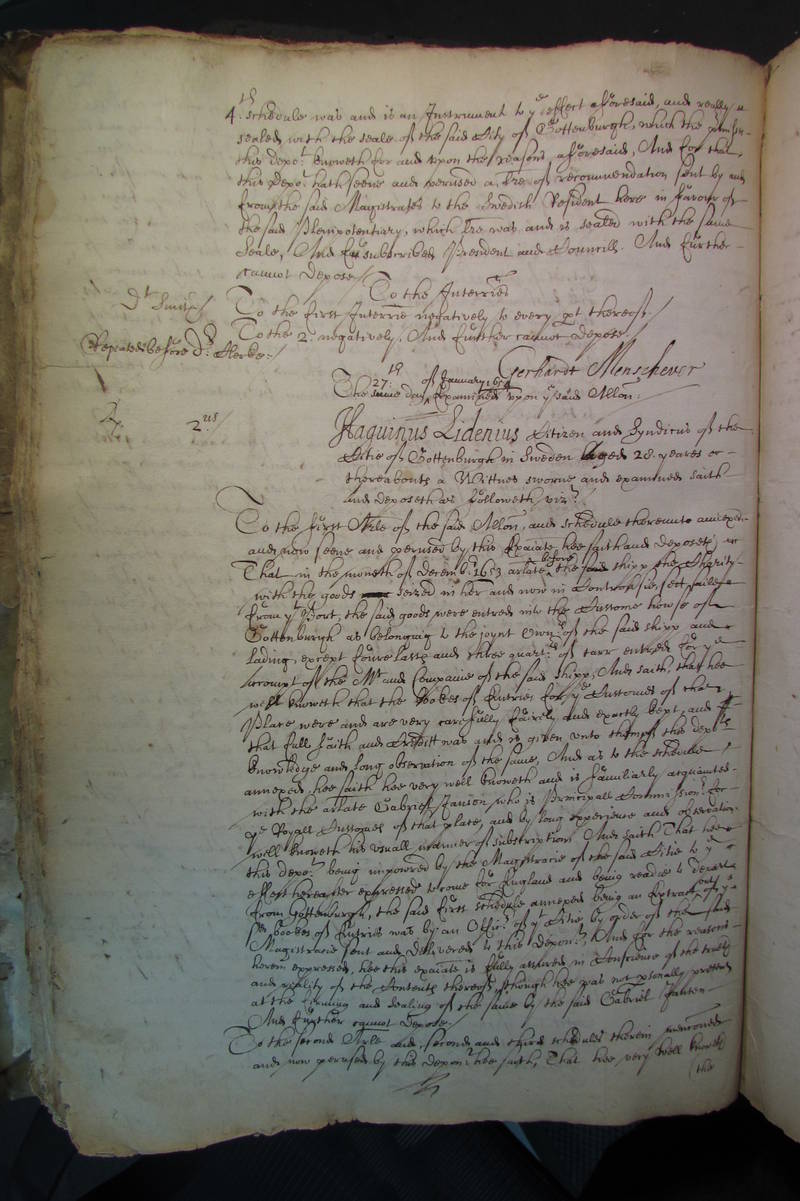 4th. schedule was and is an Instrument to ye effect aforesaid, and really
sealed with the seale of the said City of Gottenburgh, which the premisses
this depot. knoweth for and upon the reasons aforesaid, And for that
this depot. hath seene and perused a lre of recommendation sent by and
from the said Magistrates to the Swedish Resident here in favour of
the said Plenipotentiary, which lre was and is sealed with the same
seale, And subscribed President and Councill. And further
cannot depose./
To the Interries
Dt. Smith/
To the first Interrie negatively to every pt thereof./
To the 2. negatively. And further cannot depose.
Repeated before Dr. Clerke:/
Gerhardt Menschever
27th of January 1654
The same day Examined upon ye said Allon.
2us/
Haquinus Lidenius Citizen and Syndicus of the
Citie of Gottenburgh in Sweden Aged 28. yeares or
thereabouts a Wittnes sworne and examined saith
and deposeth as followeth vizt.
To the first Arle of the said Allon, and schedule thereunto annexed
and now seene and perused by this Exaiate hee saith and deposeth
That in the moneth of Decemb. 1653 arlate before the said shipp the Charity
with the goods seized in her and now in Controversie, set saile
from yt Port, the said goods were entred into the Custome howse of
Gottenburgh as belonging to the joynt Owners of the said shipp and
lading, except foure lasts and three quartrs of tarr entred for ye
accompt of the Mr and Companie of the said shipp, And saith, that hee
well knoweth that the Bookes of Entries for ye Customes of that
Place were and are very carefully fairely and exactly kept, and
that full faith and Creditt was and is given unto them of this depts
knowledge and long observation of the same, And as to the schedule
annexed, hee saith hee very well knoweth and is familiarly acquainted
with the arlate Gabriel Janson who is Principall Commissionr. for
ye Royall Customes of that place, and by long experience and observation
well knoweth his usuall manner of subscription. And saith That hee
this depot. being impowred by the Magistracie of the said Citie to ye
effect hereafter expressed to come for England and being readie to depart
from Gottenburgh, the said first schedule annexed being an Extract out of ye
sd bookes of Entries was by an Officr. of yt Citie, by order of the said
Magistracie sent and delivered to this depont. And for the reasons
herein expressed, hee this exaiate is fully assured in Conscience of the truth
and reality of the Contents thereof, though hee was not psonally present
at the firming and sealing of the same by the said Gabriel Janson
And further cannot depose./
To the second Arle and second and third schedules therein mencioned
and now perused by this deponr. hee saith, That hee very well knoweth
(the